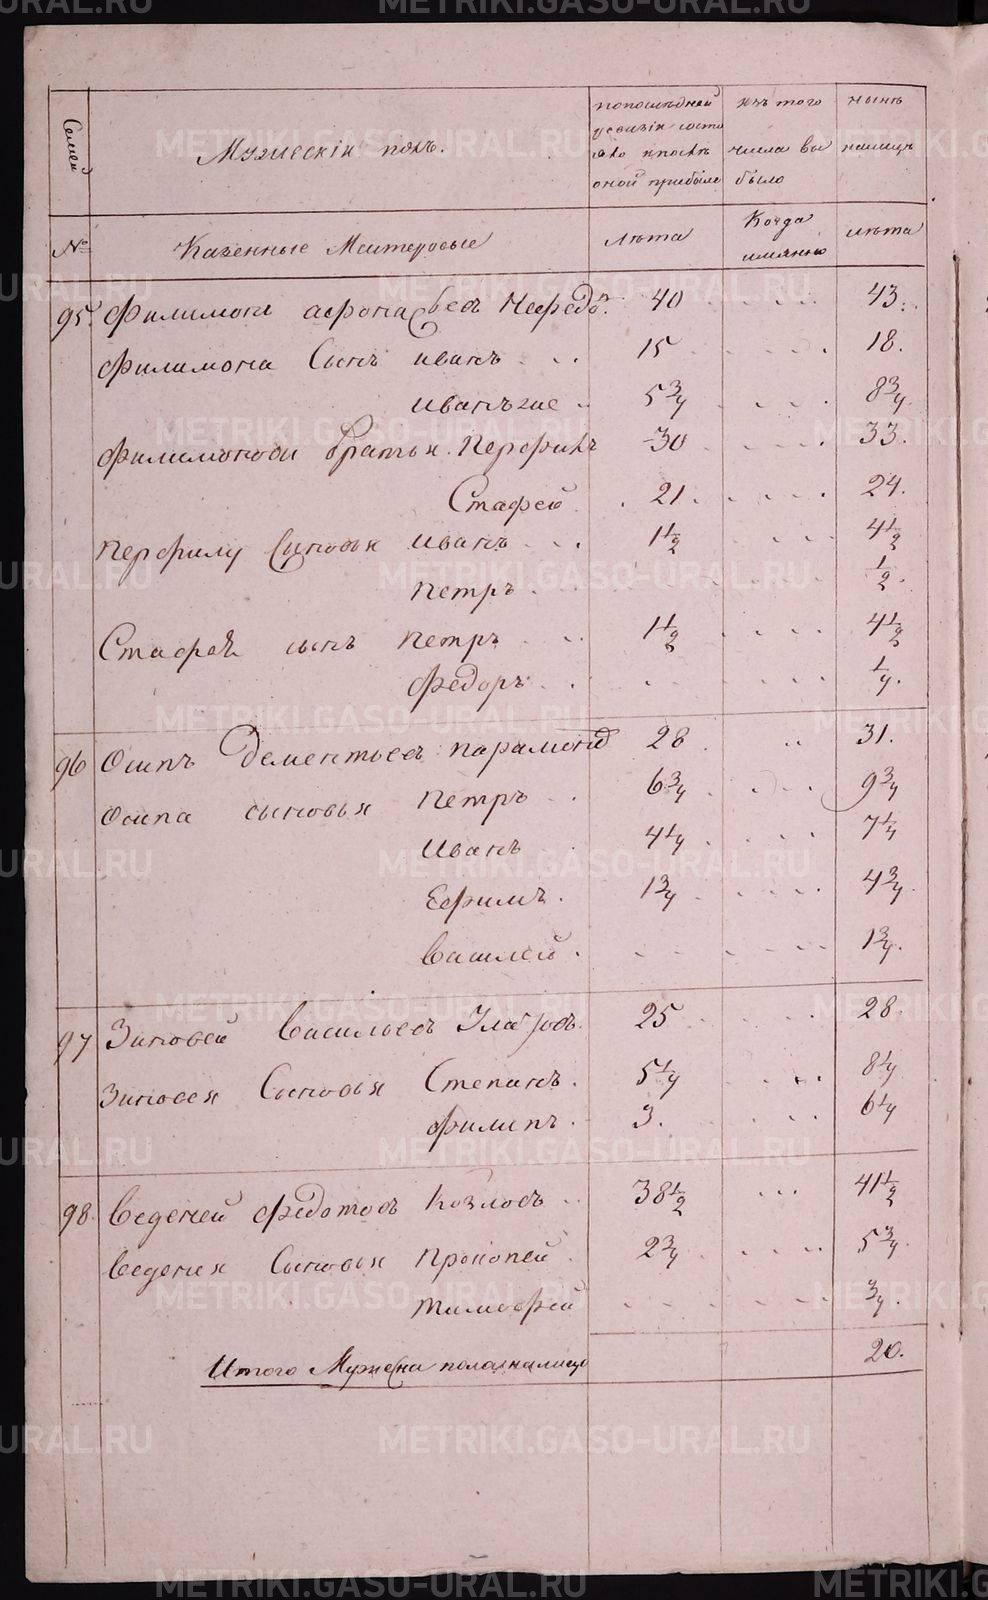 METRIKI.GASO-URAL.RU
Семей
Мужескій полъ.
попослѣдней ревизіи состояло ипослѣ оной прибыло
изъ того числа выбыло
нынѣ налицѣ
№
Казенные Мастеровые
лѣта
Когда имянно
лѣта
95. Филимонъ афонасьевъ Нефедо. 40 43.
Филимона Сынъ иванъ 15 18.
иванъ же 5 3/4 8 3/4
Филимоновы братья Перфилъ 30 33.
Стафей 21 24.
Перфилу Сыновья иванъ 1 1/2 4 1/2
Петръ 1/2
Стафея сынъ Петръ 1 1/2 4 1/2
Федоръ 1/4
96 Осипъ Дементьевъ парамоно 28 31.
Осипа сыновья Петръ 6 3/4 9 3/4
Иванъ 4 1/4 7 1/4
Ефимъ 1 3/4 4 3/4
Василей 1 3/4
97 Зиновей Васильевъ 25 28
Зиновея Сыновья Степанъ 5 1/4 8 1/4
Филипъ 3. 6 1/4
98. Веденей Федотовъ Козловъ 38 1/2 41 1/2
Веденея Сыновья Прокопей 2 3/4 5 3/4
Тимофей 3/4
Итого Мужеска пола налицо 20.